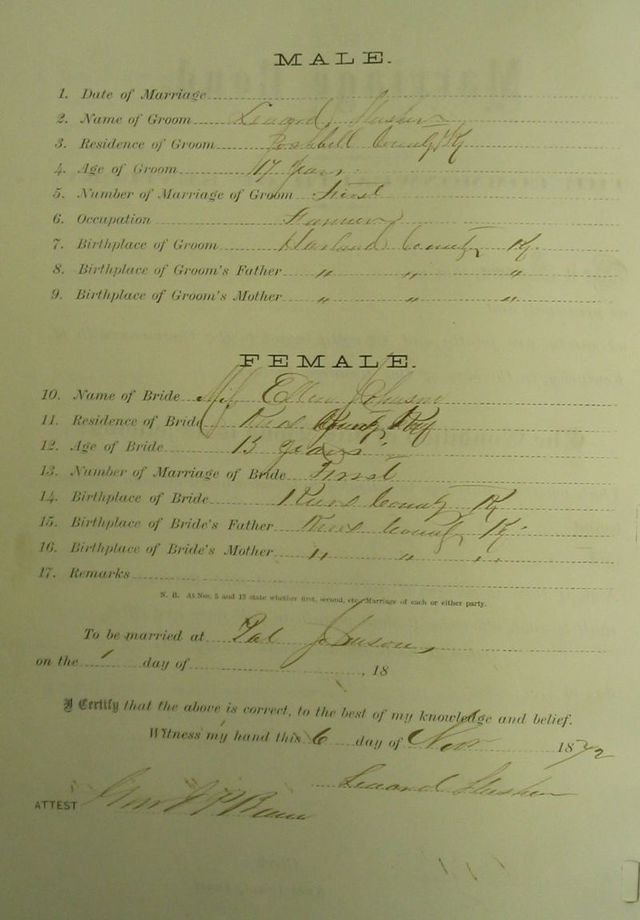 MALE.
1. Date of Marriage
2. Name of Groom Leaord Slusher
3. Residence of Groom Joshbell County Ky
4. Age of Groom 17 years
5. Number of Marriage of Groom First
6. Occupation Farmer
7. Birthplace of Groom Harland County Ky
8. Birthplace of Groom's Father " " "
9. Birthplace of Groom's Mother " " "
FEMALE.
10. Name of Bride Ellen Johnson
11. Residence of Bride Knox County Ky
12. Age of Bride years
13. Number of Marriage of Bride First
14. Birthplace of Bride Knox County Ky
15. Birthplace of Bride's Father Knox County Ky
16. Birthplace of Bride's Mother " " "
17. Remarks
N. B. At Nos. 5 and 13 state whether first, second, etc., Marriage of each or either party.
To be married at Johnson
on the day of , 18
I Certify that the above is correct, to the best of my knowledge and belief.
Witness my hand this 6 day of Nov 1872
Leaord Slusher
ATTEST